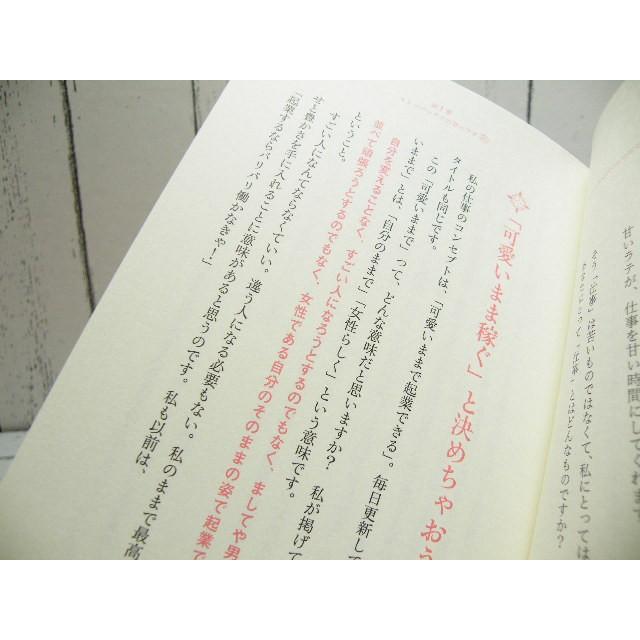 甘いラテが、仕事を甘い時間にしてくれます
そう「仕事」は苦いものではなくて、私にとっては
あなたにとって「仕事」とはどんなものですか？
第1章
「可愛いまま稼ぐ」と決めちゃおう
私の仕事のコンセプトは、「可愛いままで起業できる」。毎日更新して
タイトルも同じです。
この「可愛いままで」って、どんな意味だと思いますか？　私が掲げて
いままで」とは、「自分のままで」「女性らしく」という意味です。
自分を変えることなく、すごい人になろうとするのでもなく、ましてや男
並べて頑張ろうとするのでもなく、女性である自分のそのままの姿で起業で
ということ。
すごい人になんてならなくていい。違う人になる必要もない。私のままで最高
せと豊かさを手に入れることに意味があると思うのです。私も以前は、
「起業するならバリバリ働かなきゃ！」